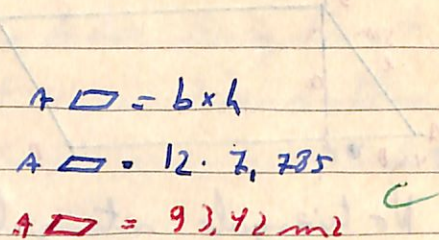 A ▱ = b x h
A ▱ = 12 . 7, 785
A ▱ = 93,42 m2
C